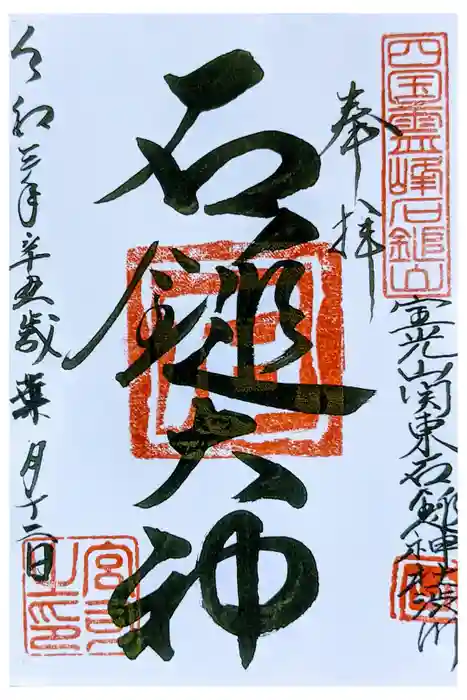 四国霊峰石鎚山
宝光山関東石鎚神社
奉拝
石鎚大神
令和三年辛丑歳葉月十二日